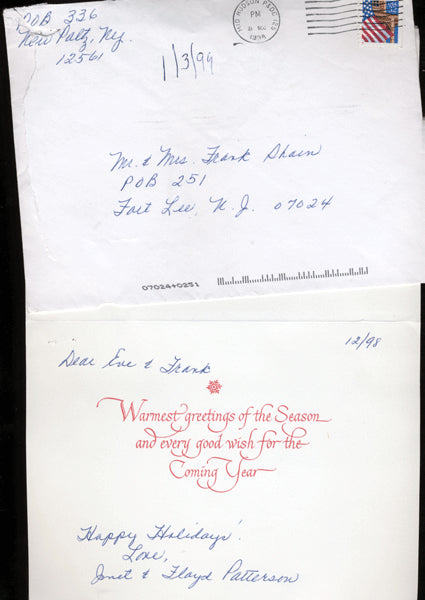 POB 336
New Paltz, Ny.
12561
MID HUDSON P&DC 125
PM
1998
1/3/99
Mr. & Mrs. Frank Shain
POB 251
Fort Lee, N.J. 07024
07024+0251
12/98
Dear Eve & Frank
Warmest greetings of the Season
and every good wish for the
Coming Year
Happy Holidays!
Love,
Janet & Floyd Patterson